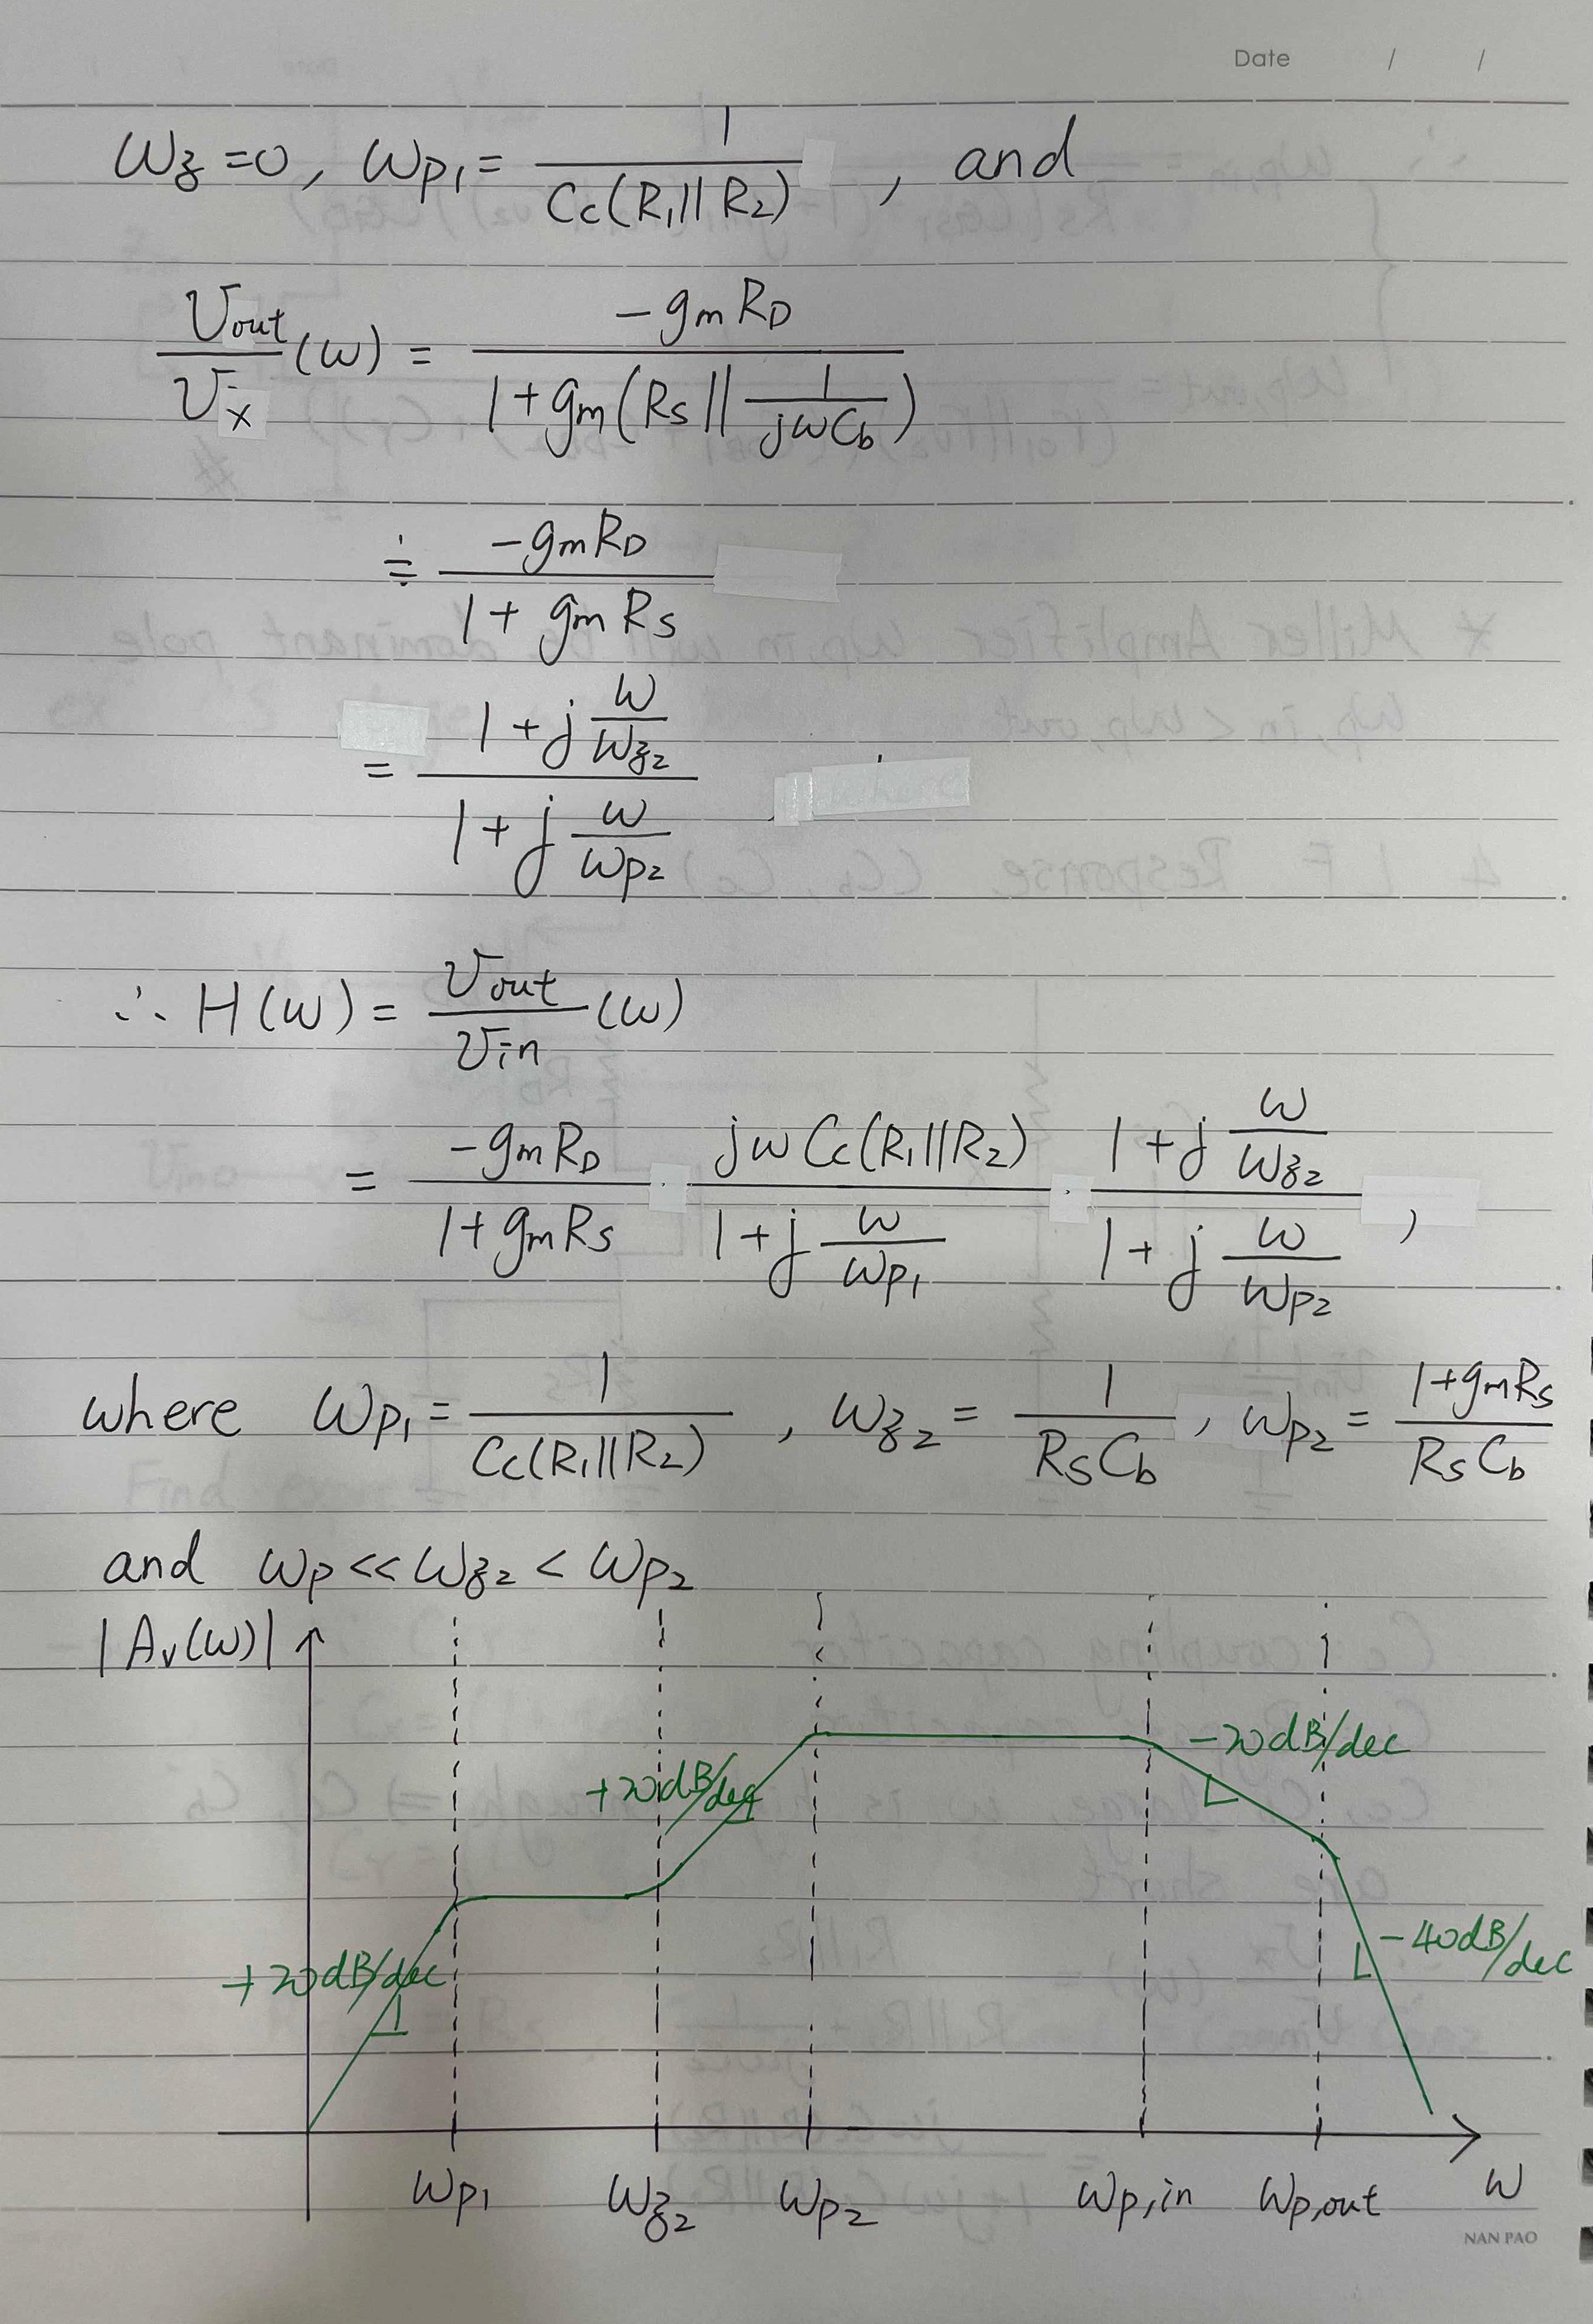 Date / /
ω_z = 0, ω_p1 = 1 / (C_c(R_1||R_2)), and
V_out/V_x (ω) = -g_m R_D / (1 + g_m(R_S || 1/(jωC_b)))
≒ -g_m R_D / (1 + g_m R_S)
= (1 + j ω/ω_z2) / (1 + j ω/ω_p2)
∴ H(ω) = V_out/V_in (ω)
= -g_m R_D / (1 + g_m R_S) · jωC_c(R_1||R_2) / (1 + j ω/ω_p1) · (1 + j ω/ω_z2) / (1 + j ω/ω_p2),
where ω_p1 = 1 / (C_c(R_1||R_2)), ω_z2 = 1 / (R_S C_b), ω_p2 = (1 + g_m R_S) / (R_S C_b)
and ω_p << ω_z2 < ω_p2
|A_v(ω)|
-20dB/dec
+20dB/dec
-40dB/dec
+20dB/dec
ω_p1 ω_z2 ω_p2 ω_p,in ω_p,out ω
NAN PAO